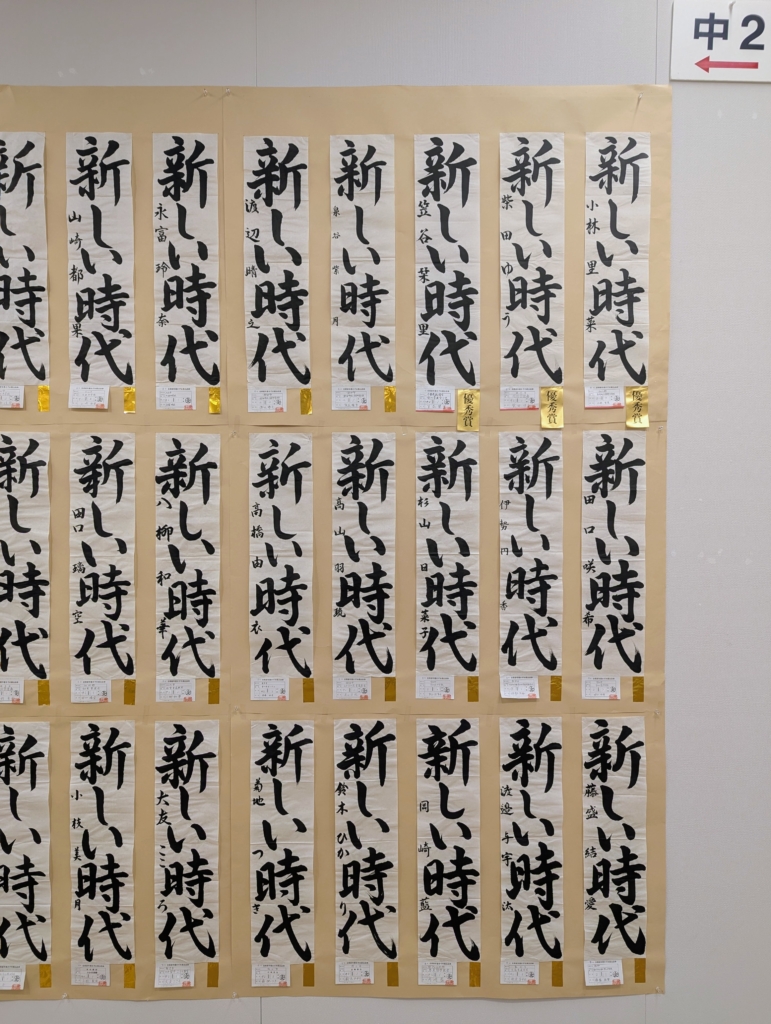 中2
新しい時代
小林里菜
優秀賞
新しい時代
柴田ゆう
優秀賞
新しい時代
笠谷栞里
優秀賞
新しい時代
谷 月
新しい時代
渡辺晴
新しい時代
永富玲奈
新しい時代
山崎都果
新しい時代
新しい時代
田口咲希
新しい時代
伊勢円香
新しい時代
杉山日菜子
新しい時代
高山羽
新しい時代
高橋由衣
新しい時代
八柳和華
新しい時代
田口瑞空
新しい時代
新しい時代
藤盛結愛
新しい時代
渡邉
新しい時代
岡崎藍
新しい時代
鈴木ひかり
新しい時代
菊地つき
新しい時代
大友こころ
新しい時代
小枝美月
新しい時代